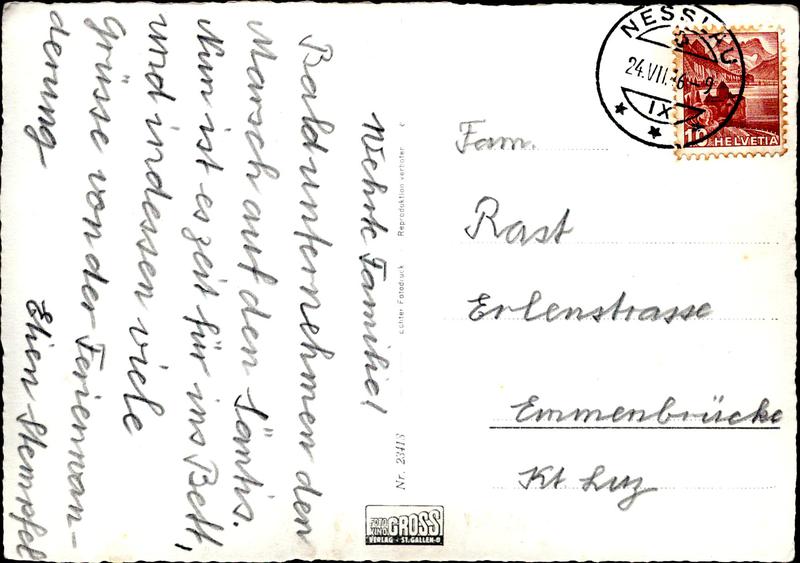 Wehrte Familie!
Bald unternehmen den
Marsch auf den Säntis.
Nun ist es Zeit für ins Bett,
und indessen viele
Grüsse von der Ferienwan-
derung
Stempfel
Echter Fotodruck Reproduktion verboten
Nr. 23418
GROSS
VERLAG - ST. GALLEN-O
NESSLAU
24.VII. 6-9
IX
10 HELVETIA
Fam.
Rast
Erlenstrasse
Emmenbrücke
Kt Luz